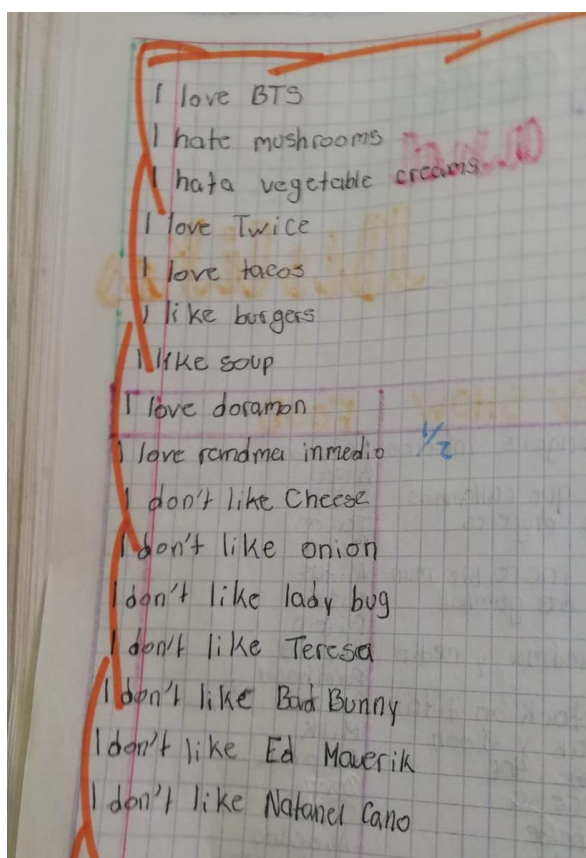 I love BTS
I hate mushrooms
I hata vegetable creams
I love Twice
I love tacos
I like burgers
I like soup
I love doramon
I love ramdma inmedio 1/2
I don't like Cheese
I don't like onion
I don't like lady bug
I don't like Teresa
I don't like Bad Bunny
I don't like Ed Maverik
I don't like Natanel Cano